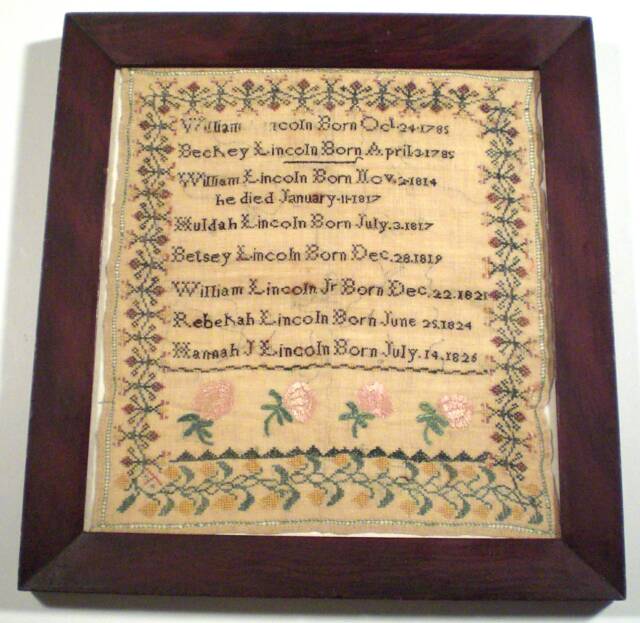 William Lincoln Born Oct 24 1785
Beckey Lincoln Born April 3 1785
William Lincoln Born Nov. 2 1814
he died January 11 1817
Huldah Lincoln Born July. 3. 1817
Betsey Lincoln Born Dec. 28. 1819
William Lincoln Jr Born Dec. 22. 1821
Rebekah Lincoln Born June 25. 1824
Hannah J Lincoln Born July. 14. 1826